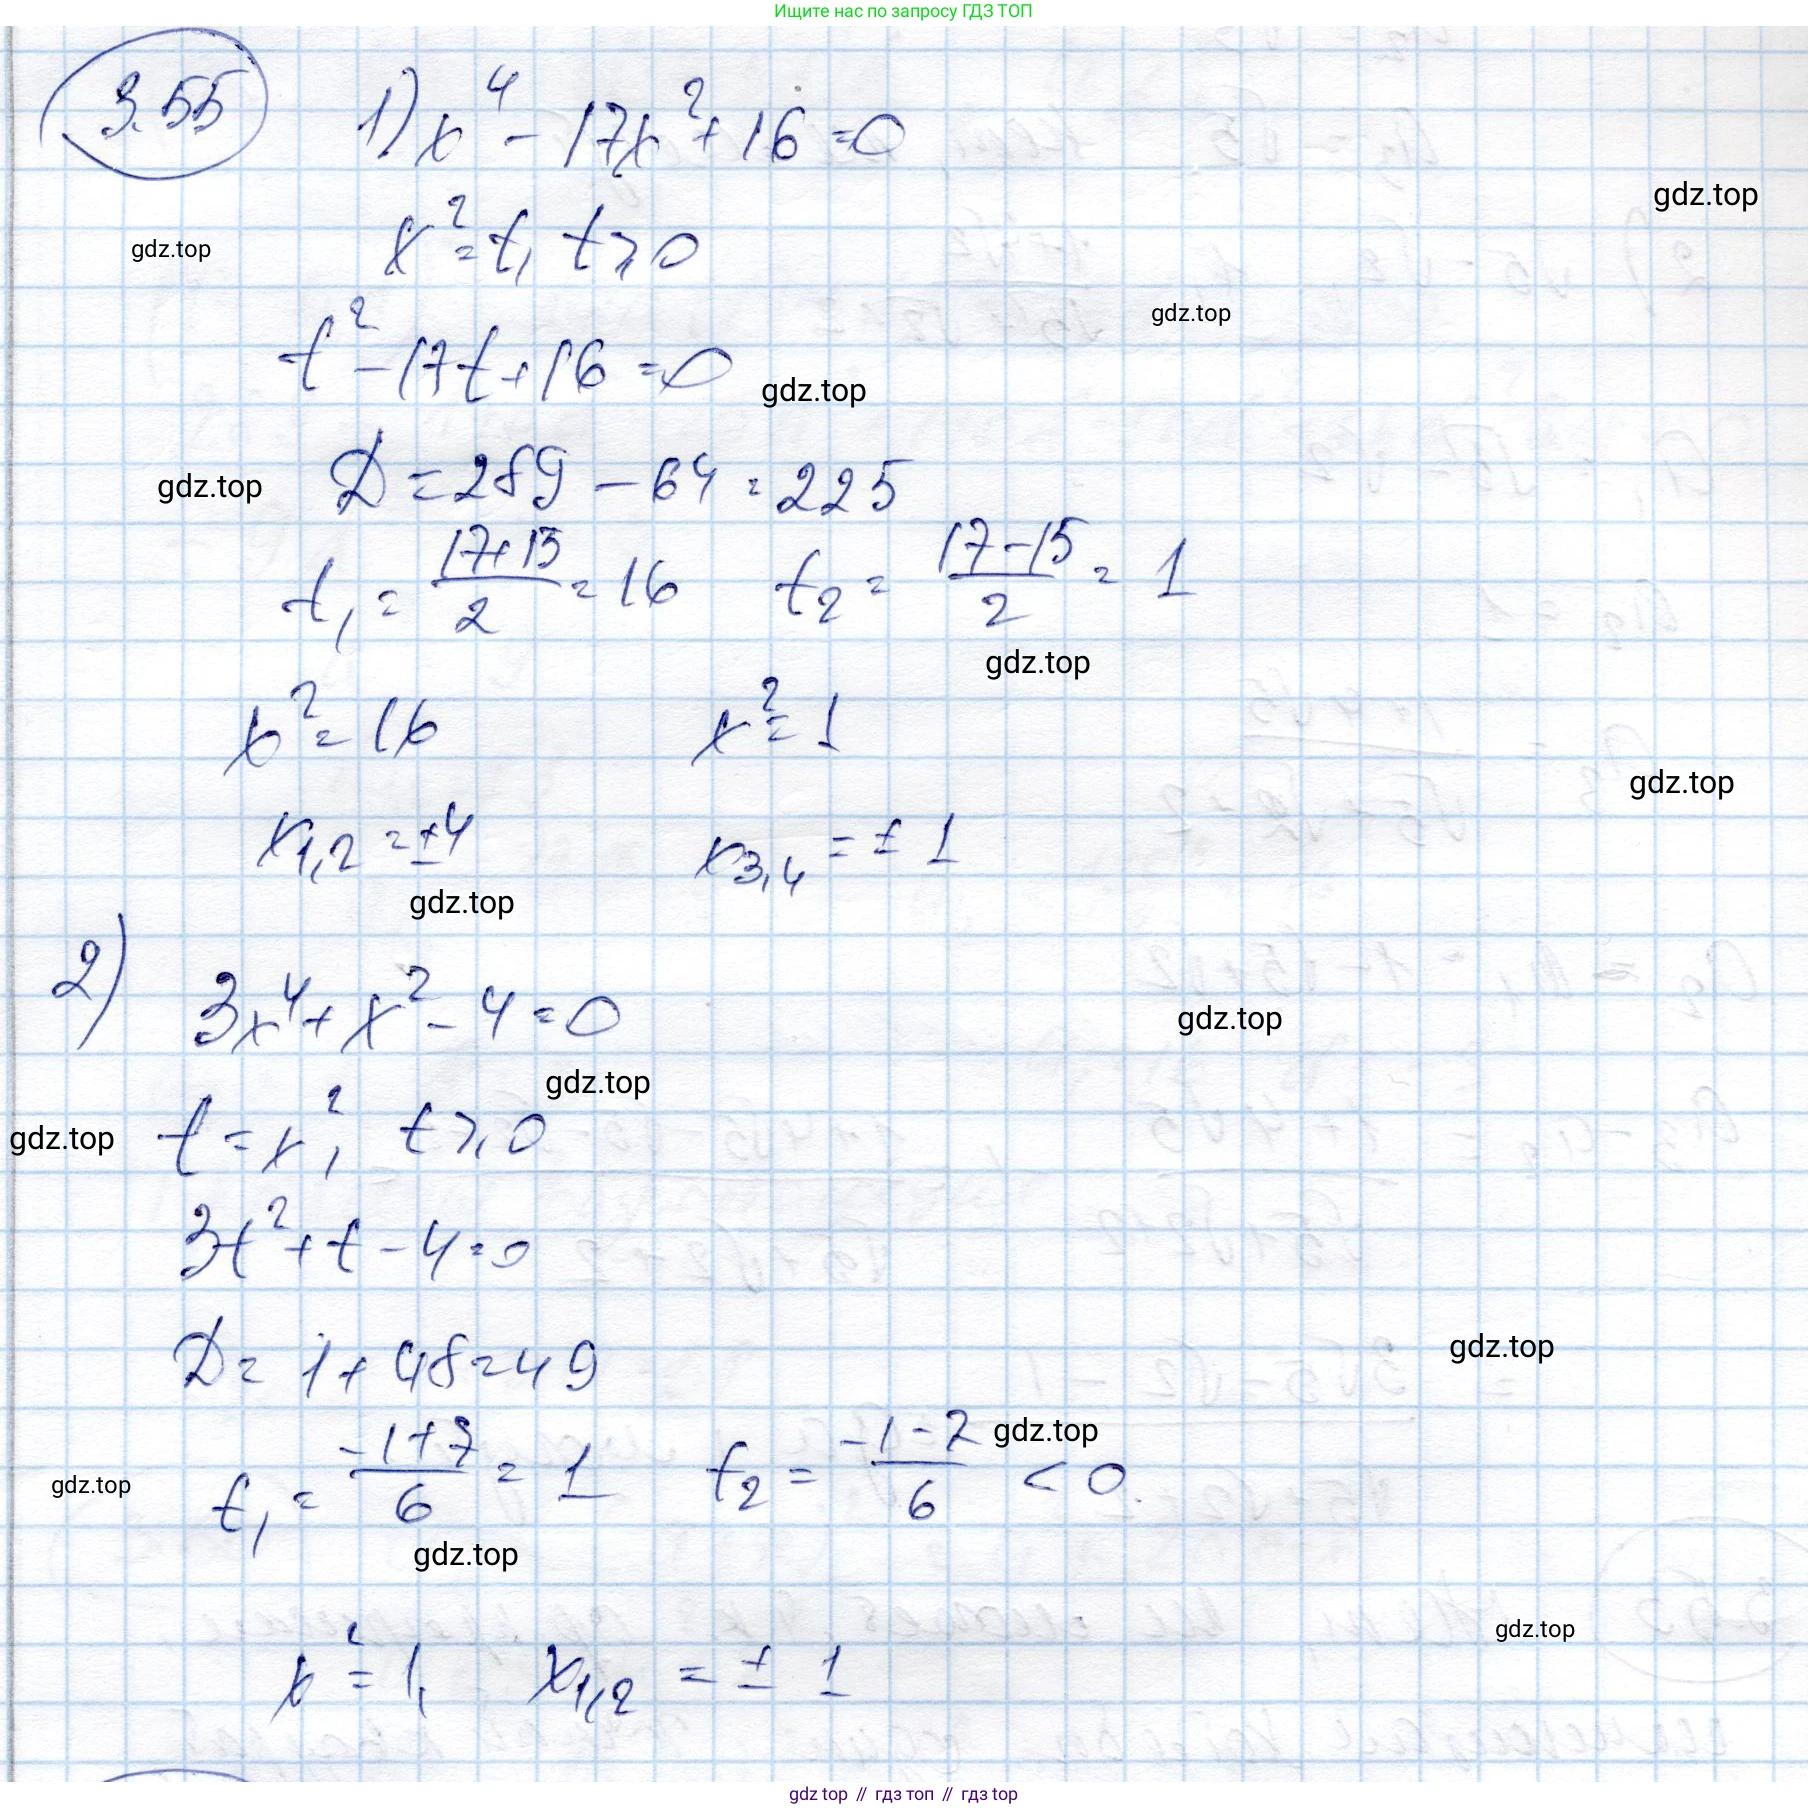 Ищите нас по запросу ГДЗ ТОП
3.55 1) x⁴ - 17x² + 16 = 0
gdz.top
gdz.top x² = t, t ⩾ 0
gdz.top
t² - 17t + 16 = 0 gdz.top
gdz.top D = 289 - 64 = 225
t₁ = (17+15)/2 = 16 t₂ = (17-15)/2 = 1
gdz.top
x² = 16 x² = 1
gdz.top
x₁,₂ = ±4 x₃,₄ = ± 1
gdz.top
2) 3x⁴ + x² - 4 = 0
gdz.top
gdz.top
gdz.top t = x², t ⩾ 0
3t² + t - 4 = 0
D = 1 + 48 = 49 gdz.top
gdz.top t₁ = (-1+7)/6 = 1 t₂ = (-1-7)/6 < 0. gdz.top
gdz.top
gdz.top
x² = 1, x₁,₂ = ± 1
gdz top // гдз топ // гдз top